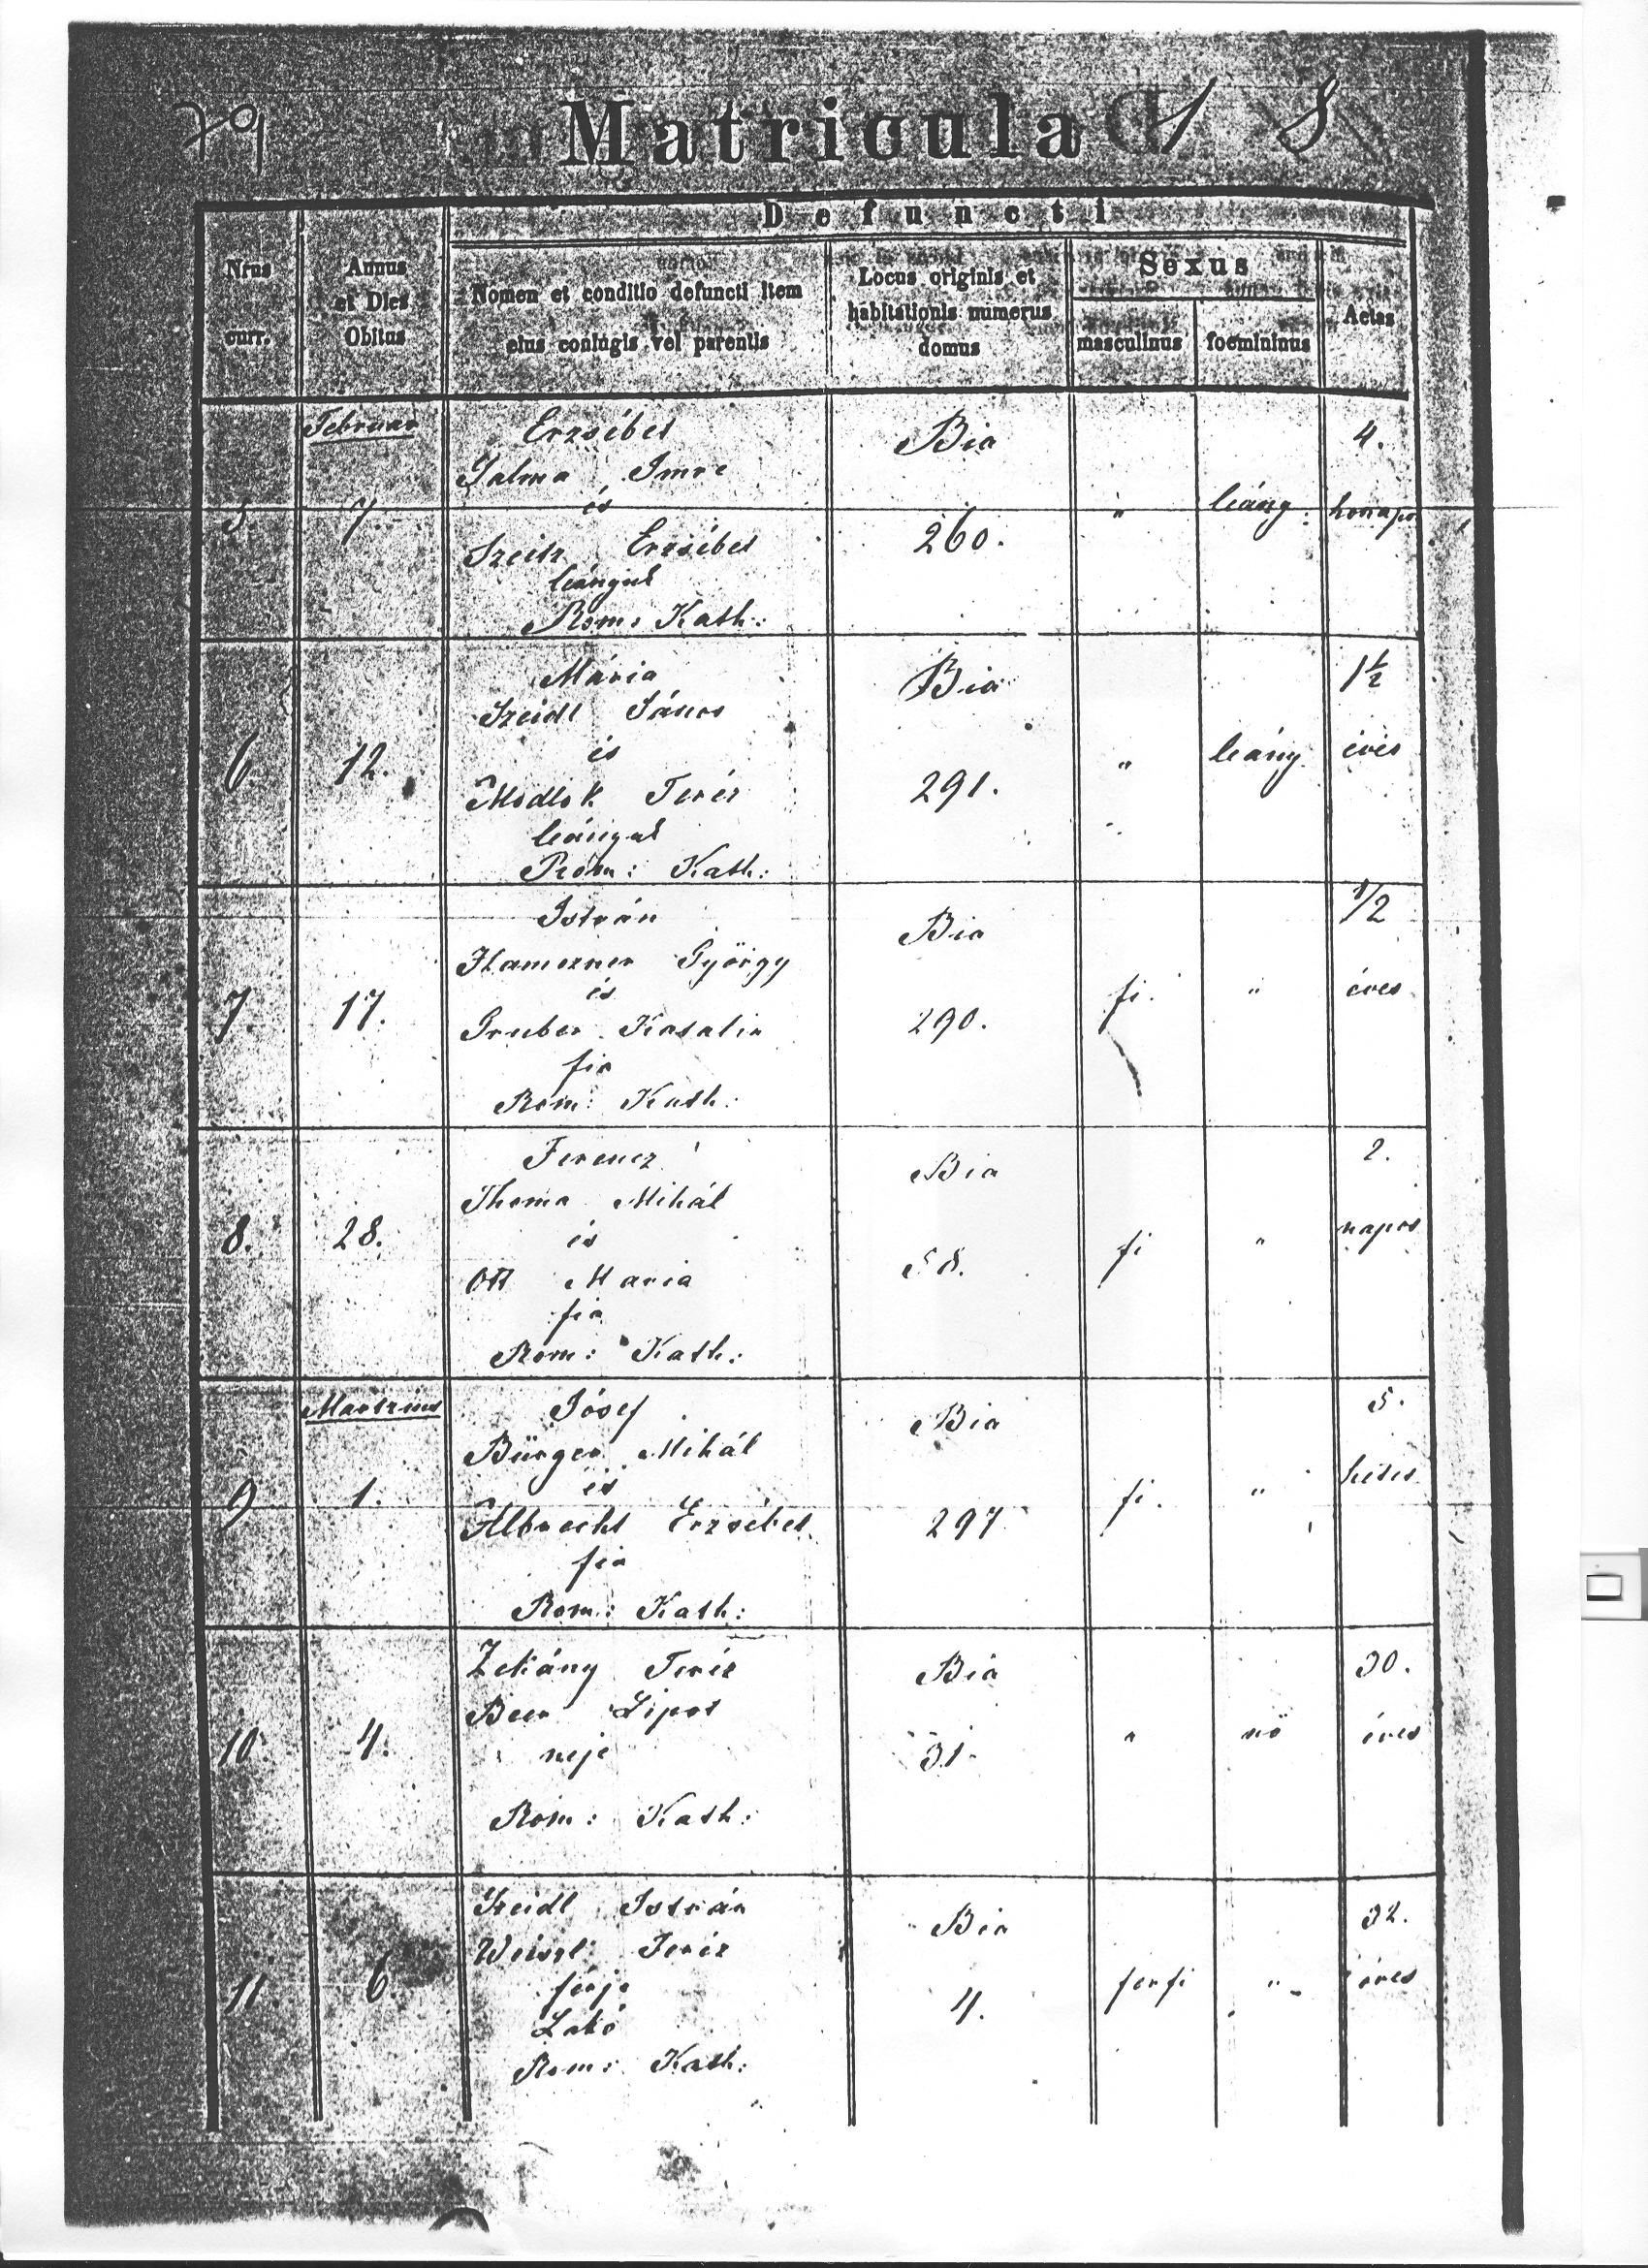 79 Matricula 18
Defuncti
Nrus curr.
Annus et Dies Obitus
Nomen et conditio defuncti item eius coniugis vel parentis
Locus originis et habitationis numerus domus
Sexus
masculinus
foemininus
Aetas
Februar
Erzsébet
Bia
4.
Imre
és
5
7
260.
"
leány
honapos
Szeitz Erzsébet
leányuk
Rom: Kath:
Mária
Bia
1½
Szeidl János
és
6
12.
291.
"
leány
éves
Modlok Teréz
leányuk
Rom: Kath:
István
Bia
1/2
György
és
7
17.
290.
fi.
"
éves
Gruber Katalin
fia
Rom: Kath:
Ferencz
Bia
2.
Thoma Mihál
és
8.
28.
58.
fi
"
napos
Ott Maria
fia
Rom: Kath:
Martzius
Jósef
Bia
5.
Bürger Mihál
és
9
1.
297
fi.
"
hetes
Albrecht Erzsébet
fia
Rom: Kath:
Zekány Teréz
Bia
30.
Beer Lipot
neje
10
4.
31.
"
nö
éves
Rom: Kath:
Szeidl István
Bia
32.
Teréz
férje
11
6
4.
ferfi
"
éves
Lakó
Rom: Kath: